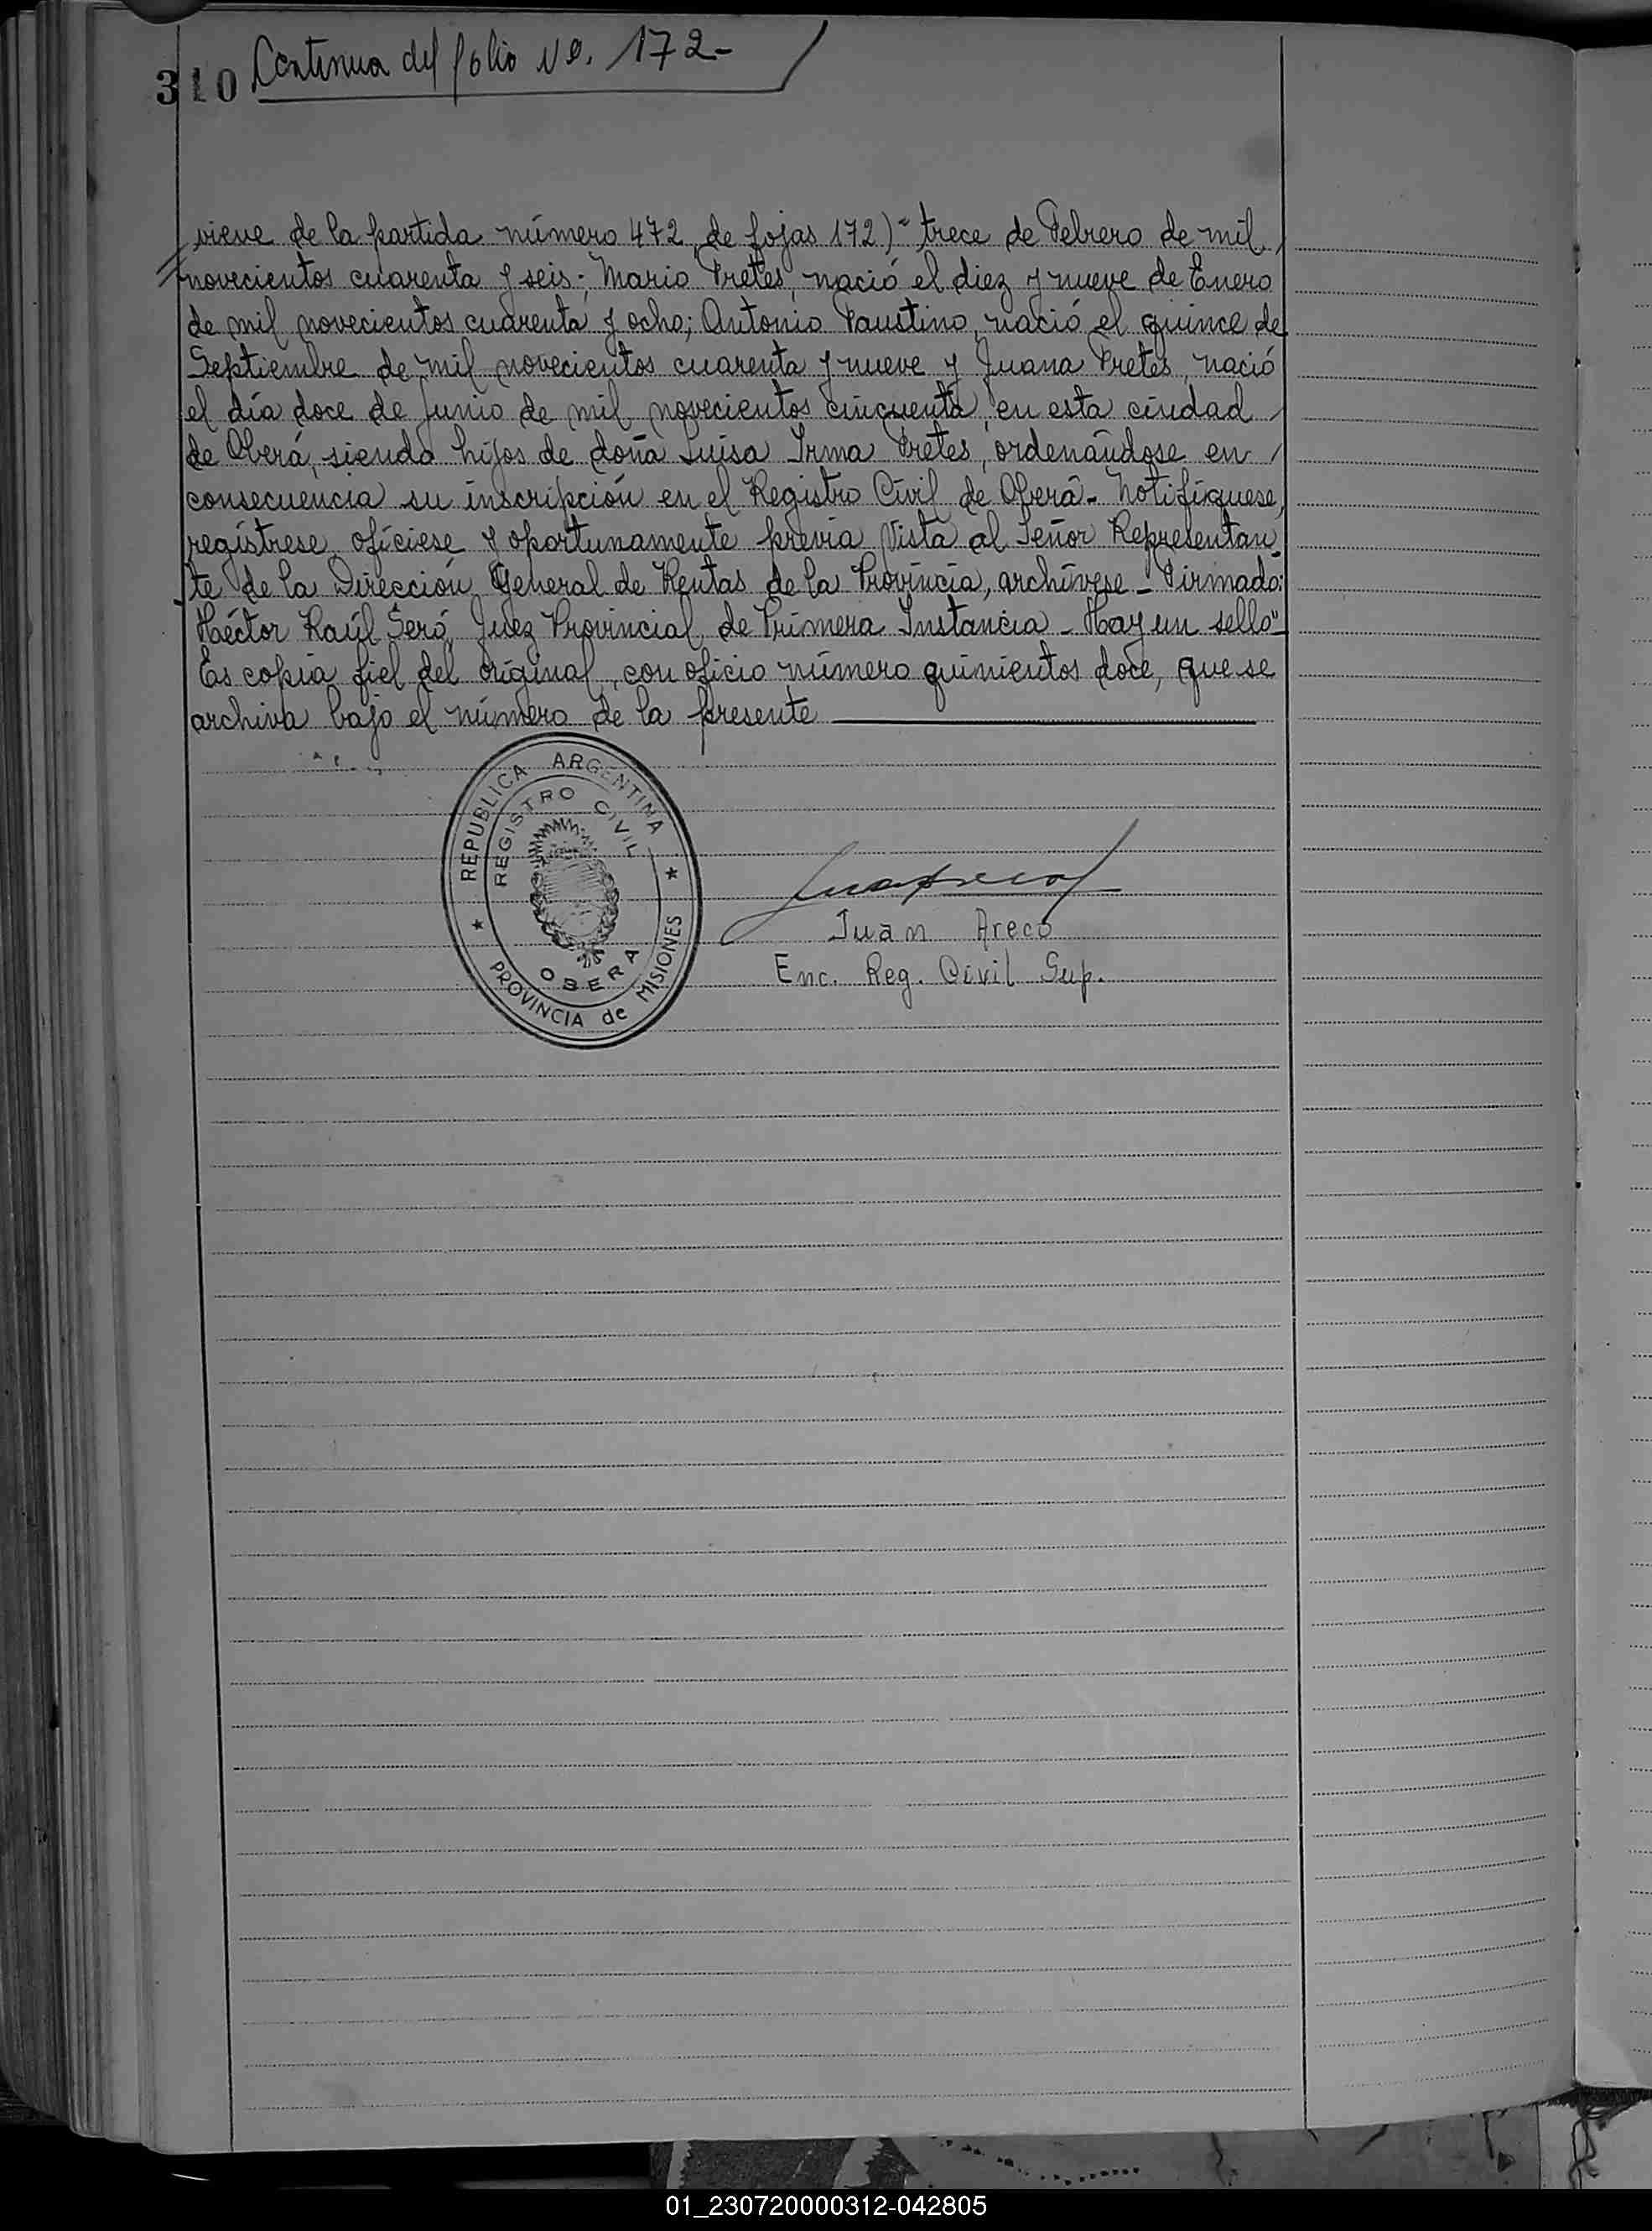 310 Continua del folio No. 172-
viene de la partida número 472, de fojas 172)-"trece de Febrero de mil
novecientos cuarenta y seis-; Mario Fretes, nació el diez y nueve de Enero
de mil novecientos cuarenta y ocho; Antonio Faustino, nació el quince de
Septiembre de mil novecientos cuarenta y nueve y Juana Fretes, nació
el día doce de Junio de mil novecientos cincuenta, en esta ciudad
de Oberá, siendo hijos de doña Luisa Irma Fretes, ordenándose en
consecuencia su inscripción en el Registro Civil de Oberá- Notifíquese,
regístrese, ofíciese y oportunamente previa Vista al Señor Representan-
te de la Dirección General de Rentas de la Provincia, archívese- Firmado:
Héctor Raúl Seró, Juez Provincial de Primera Instancia- Hay un sello"-
Es copia fiel del original, con oficio número quinientos doce, que se
archiva bajo el número de la presente
REPUBLICA ARGENTINA
REGISTRO CIVIL
OBERA
PROVINCIA de MISIONES
Juan Areco
Enc. Reg. Civil Sup.
01_230720000312-042805